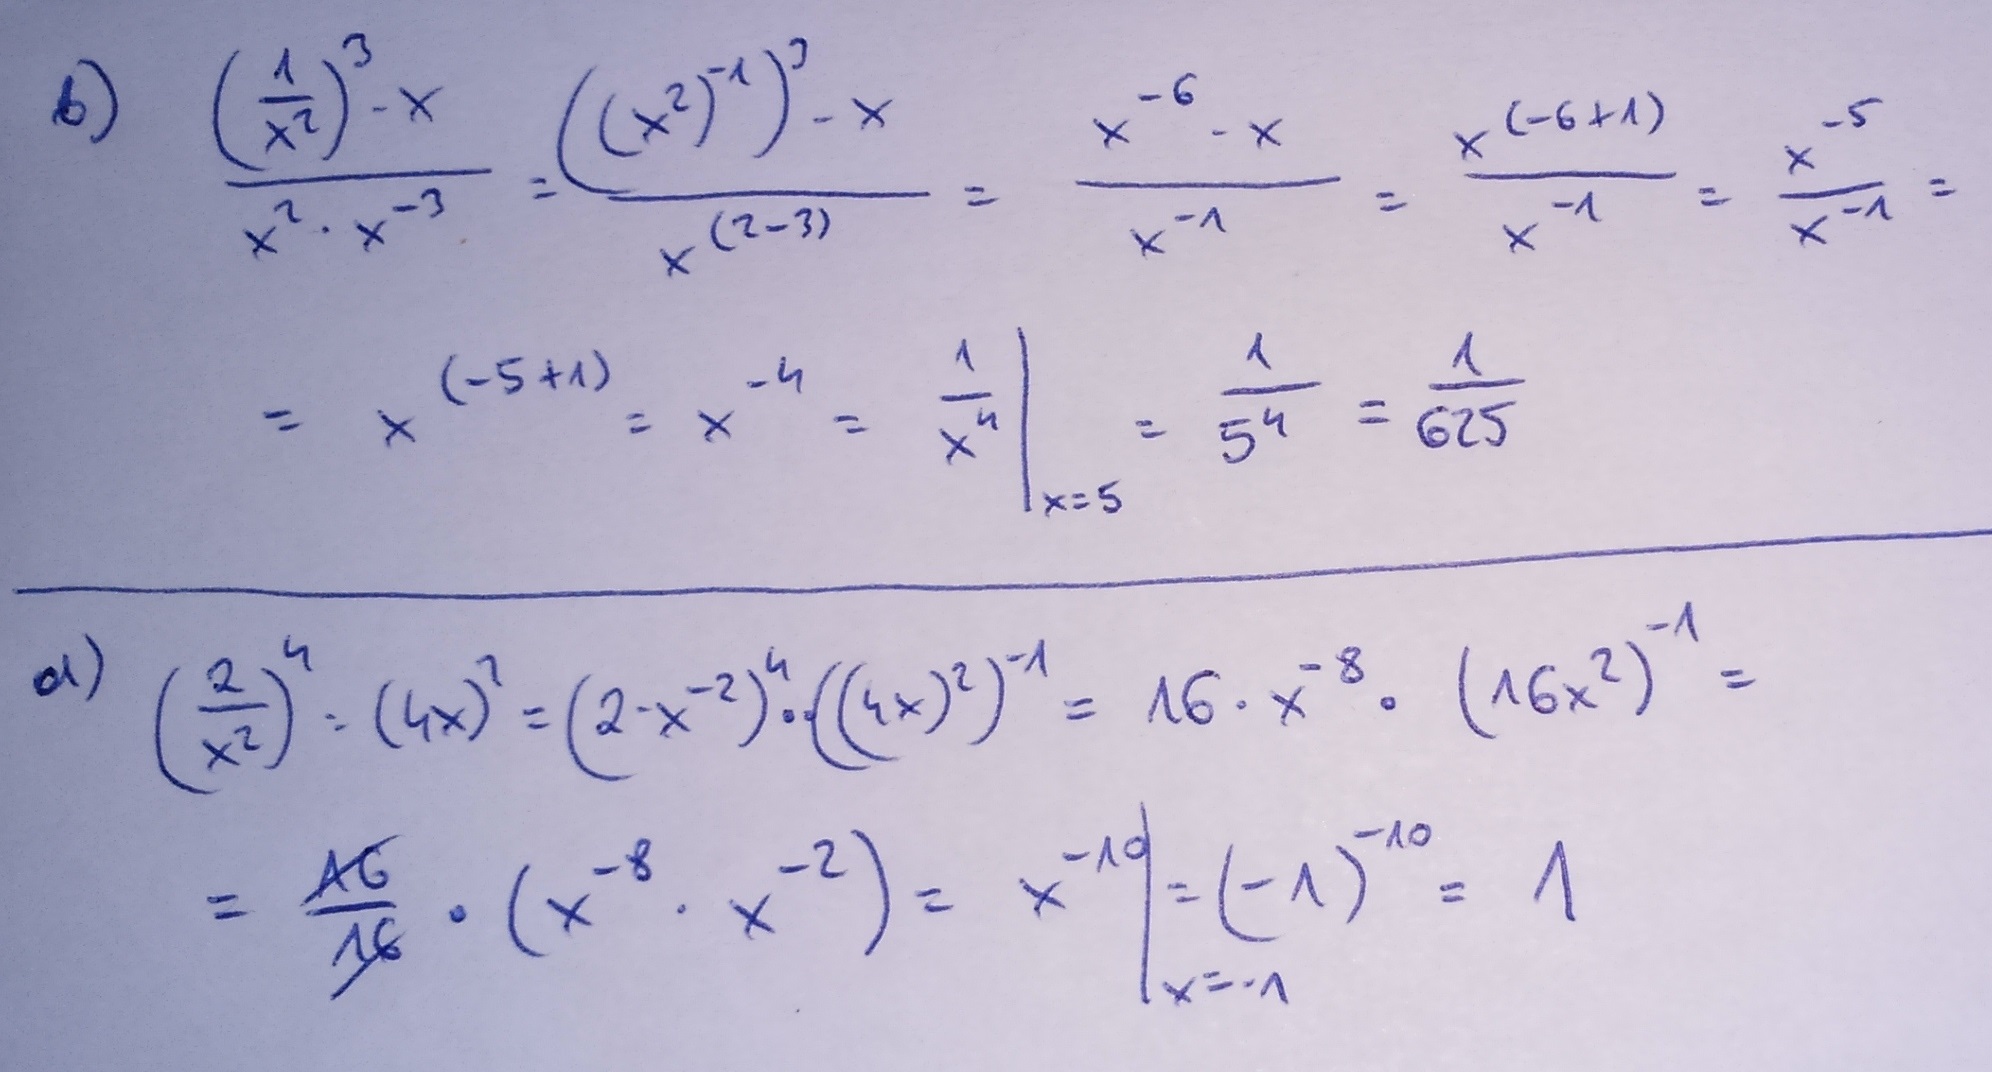 b) (1/x²)³ - x / x² · x⁻³ = ((x²)⁻¹)³ - x / x⁽²⁻³⁾ = x⁻⁶ - x / x⁻¹ = x⁽⁻⁶⁺¹⁾ / x⁻¹ = x⁻⁵ / x⁻¹ =
= x⁽⁻⁵⁺¹⁾ = x⁻⁴ = 1/x⁴ |x=5 = 1/5⁴ = 1/625
d) (2/x²)⁴ : (4x)² = (2·x⁻²)⁴ · ((4x)²)⁻¹ = 16 · x⁻⁸ · (16x²)⁻¹ =
= 16/16 · (x⁻⁸ · x⁻²) = x⁻¹⁰ |x=-1 = (-1)⁻¹⁰ = 1